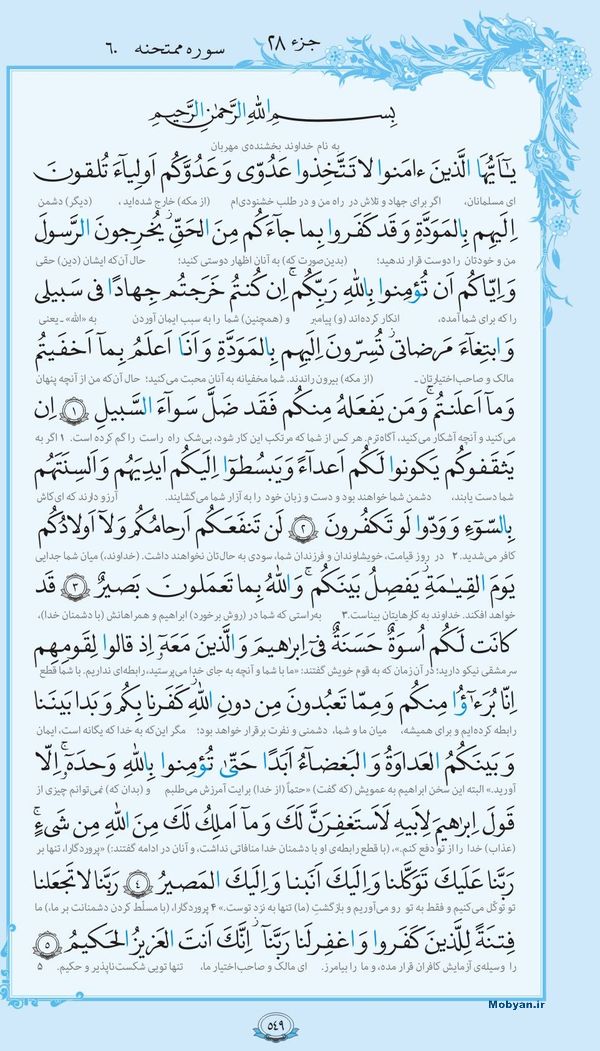 جزء ۲۸
سوره ممتحنه ۶۰
بِسمِ اللهِ الرَّحمٰنِ الرَّحیمِ
به نام خداوند بخشنده‌ی مهربان
یـٰۤاَیُّهَا الَّذینَ ءامَنوا لا تَتَّخِذوا عَدُوّی وَ عَدُوَّکُم اَولِیاۤءَ تُلقونَ
ای مسلمانان، اگر برای جهاد و تلاش در راه من و در طلب خشنودی‌ام (از مکه) خارج شده‌اید، (دیگر) دشمن
اِلَیهِم بِالمَوَدَّةِ وَ قَد کَفَروا بِما جاۤءَکُم مِنَ الحَقِّ یُخرِجونَ الرَّسولَ
من و خودتان را دوست قرار ندهید؛ (بدین‌صورت که) به آنان اظهار دوستی کنید؛ حال آن‌که ایشان (دین) حقی
وَ اِیّاکُم اَن تُؤمِنوا بِاللهِ رَبِّکُم اِن کُنتُم خَرَجتُم جِهادًا فی سَبیلی
را که برای شما آمده، انکار کرده‌اند (و) پیامبر و (همچنین) شما را به سبب ایمان آوردن به «الله» ـ یعنی
وَ ابتِغاۤءَ مَرضاتی تُسِرّونَ اِلَیهِم بِالمَوَدَّةِ وَ اَنَا اَعلَمُ بِماۤ اَخفَیتُم
مالک و صاحب‌اختیارتان ـ (از مکه) بیرون راندند. شما مخفیانه به آنان محبت می‌کنید؛ حال آن‌که من از آنچه پنهان
وَ ماۤ اَعلَنتُم وَ مَن یَفعَلهُ مِنکُم فَقَد ضَلَّ سَواۤءَ السَّبیلِ ﴿۱﴾ اِن
می‌کنید و آنچه آشکار می‌کنید، آگاه‌ترم. هر کس از شما که مرتکب این کار شود، بی‌شک راه راست را گم کرده است. ۱ اگر به
یَثقَفوکُم یَکونوا لَکُم اَعداۤءً وَ یَبسُطوۤا اِلَیکُم اَیدِیَهُم وَ اَلسِنَتَهُم
شما دست یابند، دشمن شما خواهند بود و دست و زبان خود را به آزار شما می‌گشایند. آرزو دارند که ای‌کاش
بِالسّوۤءِ وَ وَدّوا لَو تَکفُرونَ ﴿۲﴾ لَن تَنفَعَکُم اَرحامُکُم وَ لاۤ اَولادُکُم
کافر می‌شدید. ۲ در روز قیامت، خویشاوندان و فرزندان شما، سودی به حال‌تان نخواهند داشت. (خداوند،) میان شما جدایی
یَومَ القِیـٰمَةِ یَفصِلُ بَینَکُم وَ اللهُ بِما تَعمَلونَ بَصیرٌ ﴿۳﴾ قَد
خواهد افکند. خداوند به کارهایتان بیناست. ۳ به‌راستی که شما در (روش برخورد) ابراهیم و همراهانش (با دشمنان خدا)،
کانَت لَکُم اُسوَةٌ حَسَنَةٌ فیۤ اِبرٰهیمَ وَ الَّذینَ مَعَهُۤ اِذ قالوا لِقَومِهِم
سرمشقی نیکو دارید؛ در آن زمان که به قوم خویش گفتند: «ما با شما و آنچه به جای خدا می‌پرستید، رابطه‌ای نداریم. با شما قطع
اِنّا بُرَءٰۤؤُا مِنکُم وَ مِمّا تَعبُدونَ مِن دونِ اللهِ کَفَرنا بِکُم وَ بَدا بَینَنا
رابطه کرده‌ایم و برای همیشه، میان ما و شما، دشمنی و نفرت برقرار خواهد بود؛ مگر این‌که به خدا که یگانه است، ایمان
وَ بَینَکُمُ العَداوَةُ وَ البَغضاۤءُ اَبَدًا حَتّیٰ تُؤمِنوا بِاللهِ وَحدَهُۤ اِلّا
آورید.» البته این سخن ابراهیم به عمویش (که گفت) «حتماً (از خدا) برایت آمرزش می‌طلبم و (بدان که) نمی‌توانم چیزی از
قَولَ اِبرٰهیمَ لِاَبیهِ لَاَستَغفِرَنَّ لَکَ وَ ماۤ اَملِکُ لَکَ مِنَ اللهِ مِن شَیءٍ
(عذاب) خدا را از تو دفع کنم.»، (با قطع رابطه‌ی او با دشمنان خدا منافاتی نداشت، و آنان در ادامه گفتند:) «پروردگارا، تنها بر
رَبَّنا عَلَیکَ تَوَکَّلنا وَ اِلَیکَ اَنَبنا وَ اِلَیکَ المَصیرُ ﴿۴﴾ رَبَّنا لا تَجعَلنا
تو توکّل می‌کنیم و فقط به تو رو می‌آوریم و بازگشت (ما) تنها به نزد توست.» ۴ پروردگارا، (با مسلّط کردن دشمنانت بر ما،) ما
فِتنَةً لِلَّذینَ کَفَروا وَ اغفِر لَنا رَبَّناۤ اِنَّکَ اَنتَ العَزیزُ الحَکیمُ ﴿۵﴾
را وسیله‌ی آزمایش کافران قرار مده، و ما را بیامرز. ای مالک و صاحب‌اختیار ما، تنها تویی شکست‌ناپذیر و حکیم. ۵
Mobyan.ir
۵۴۹